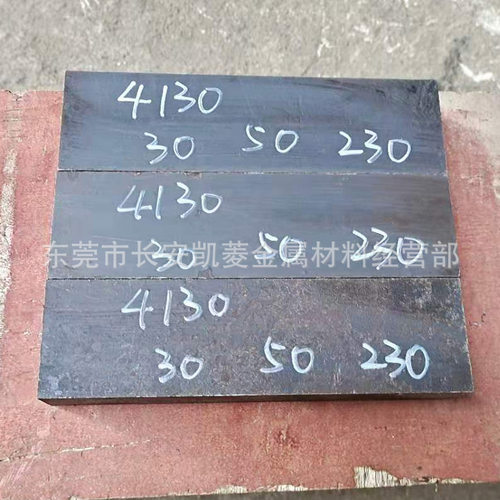 4130
30 50 230
4130
30 50 230
东莞市长安凯菱金属材料经营部
4130
30 50 230